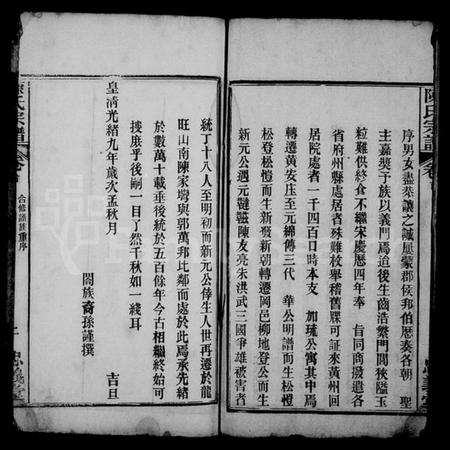 陳氏宗譜
序男女盡菜讓之誠屢蒙郡侯邦伯歷奏各朝　聖
主嘉奬于族以義門爲迫後生齒浩繁門閭狹隘玉
粒難供終食不繼宋慶曆四年奉　旨同商撥遣各
省府州縣處居者殊難枚舉稽舊牒可証来黃州回
居院處者一千四百口時本支　加琉公寓其中焉
轉遷黃安庄至元綿傳三代　華公明譜而生松愷
松登松愷而生新發新朝轉遷岡邑柳地登公而生
新元公遇元韃韃陳友亮朱洪武三國爭雄被害者
統丁十八人至明初而新元公倖生人世再遷於龍
旺山南陳家塆與郭萬邦比鄰而處於此焉承先緒
於數萬十載垂後統於五百餘年今古相繼終始可
搜庶乎後嗣一目了然千秋如一綫耳
皇清光緒九年歲次孟秋月　吉旦
閤族裔孫謹撰
陳氏宗譜
合修譜族重序